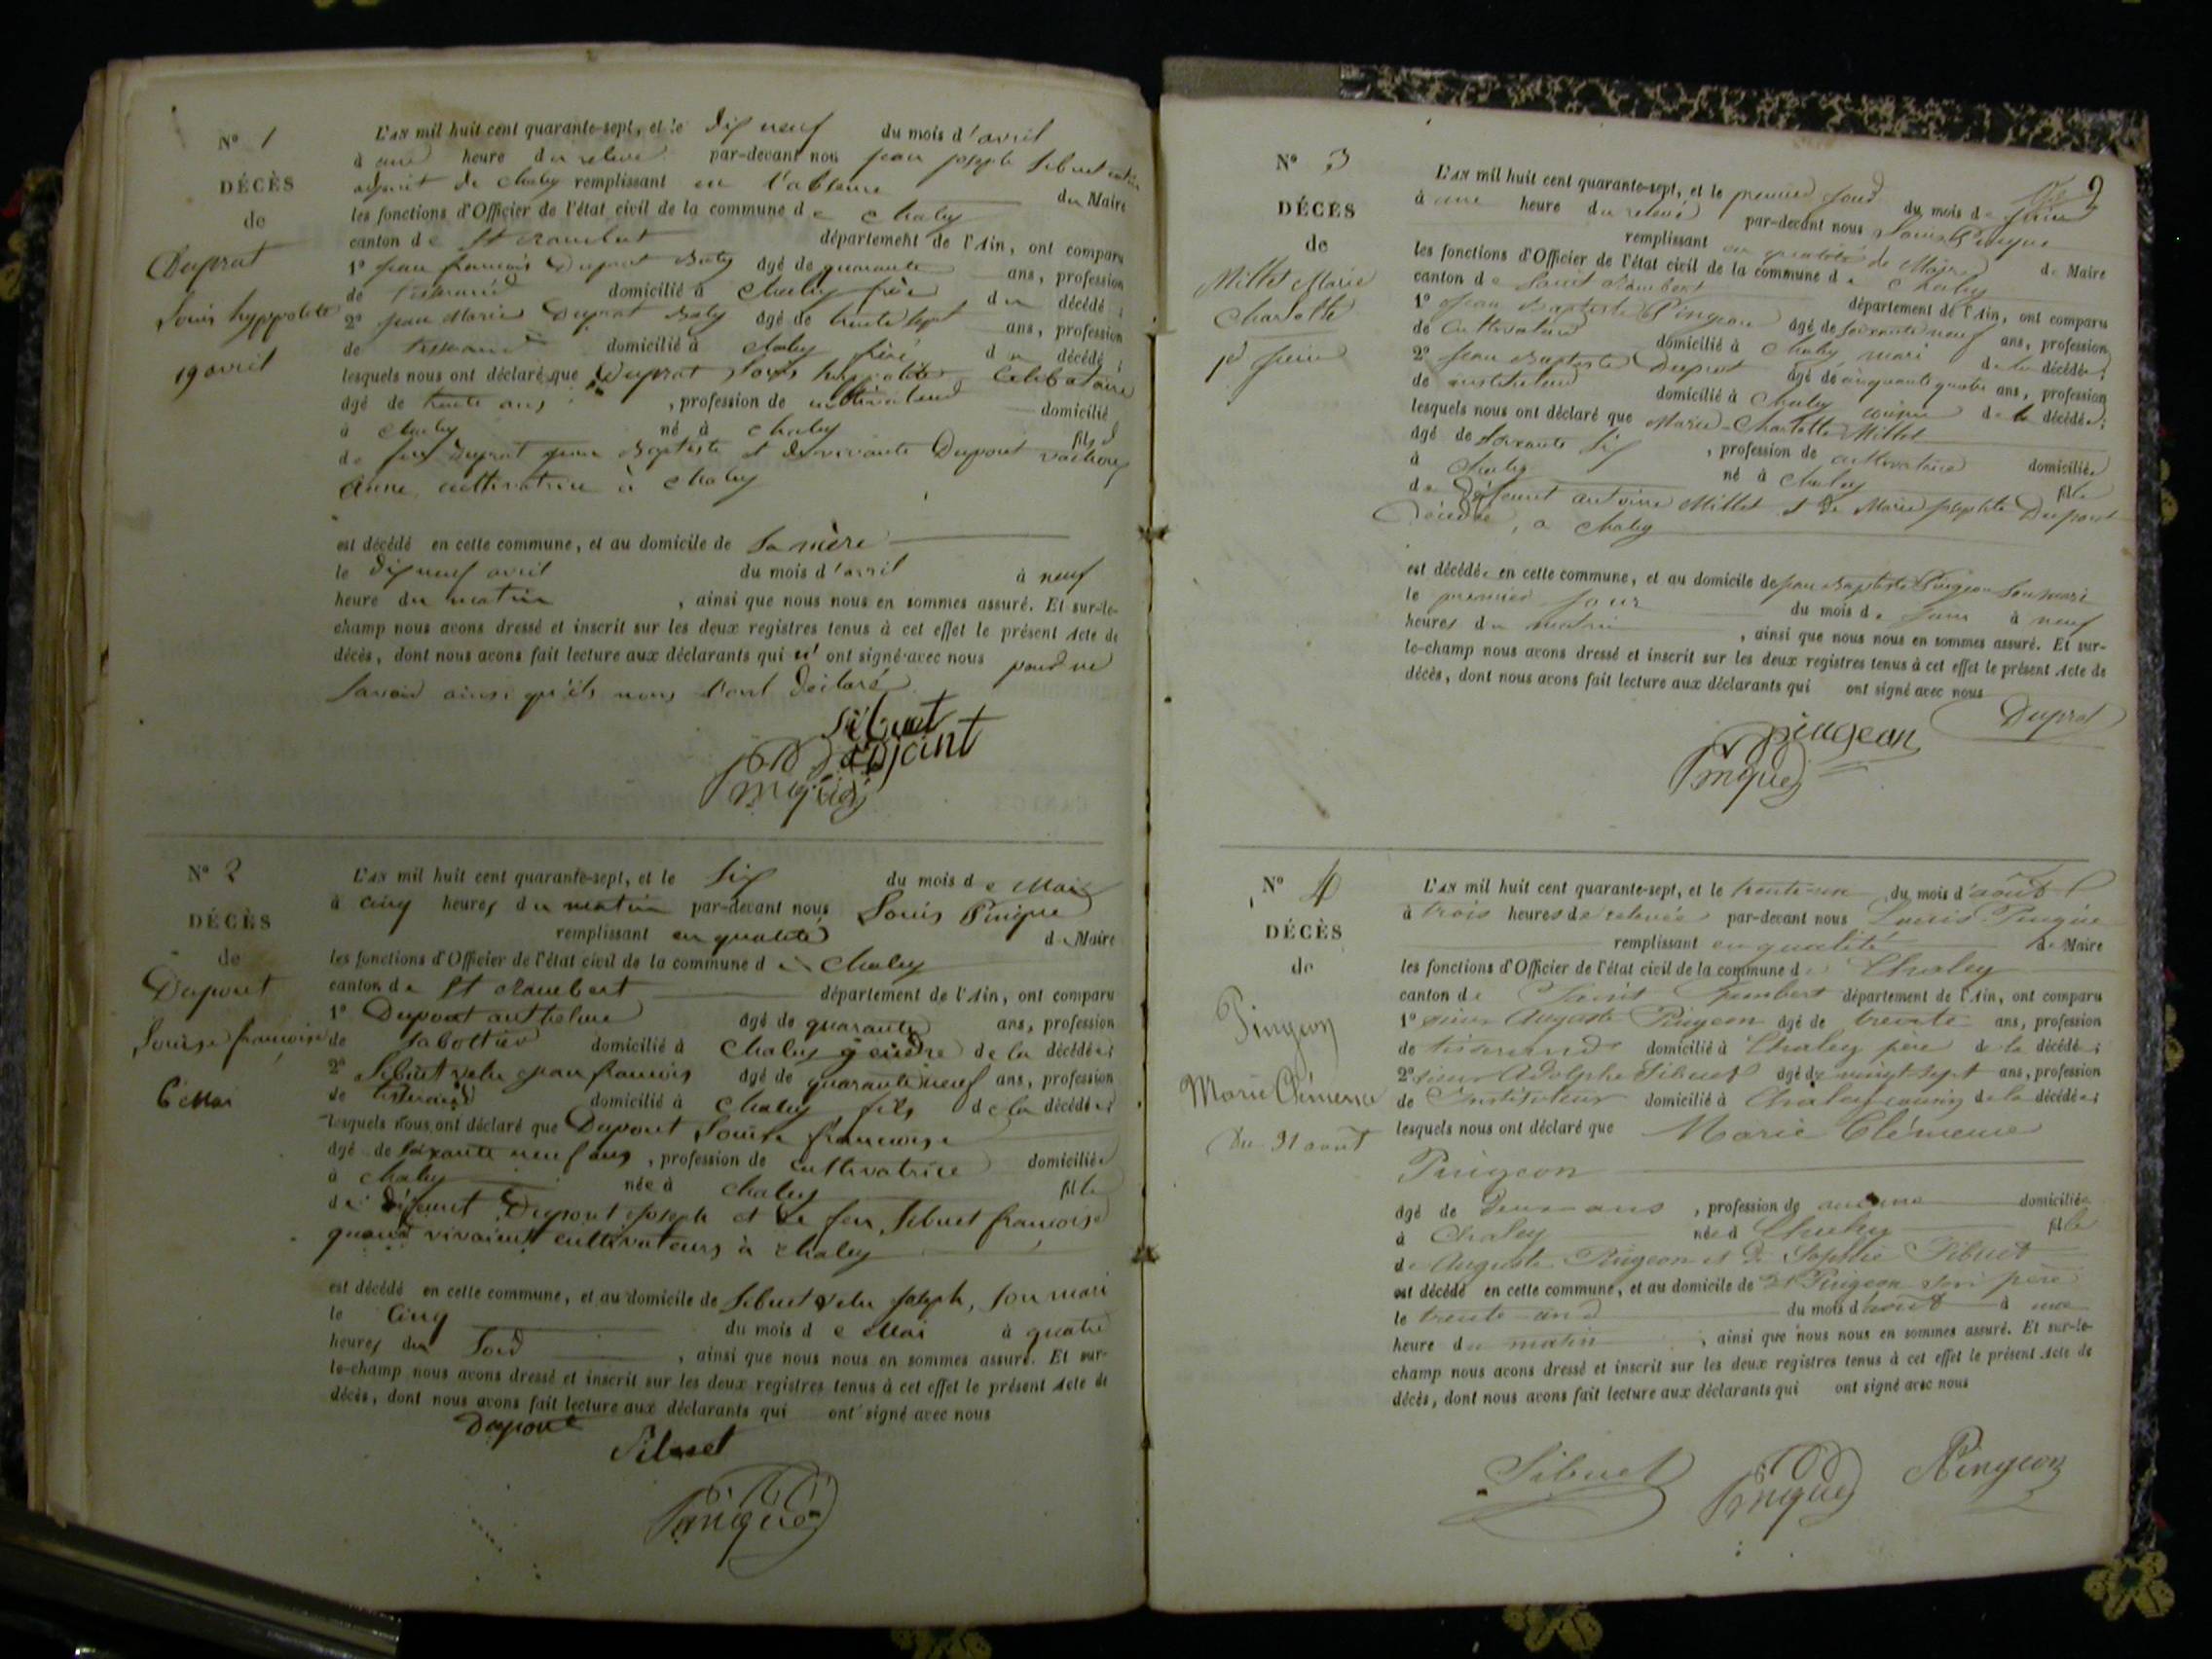 N° 1
DÉCÈS
de
Duprat
Louis hyppolite
19 avril
L'AN mil huit cent quarante-sept, et le dix neuf du mois d'avril
à une heure du relevé par-devant nous jean joseph Sibuet
adjoint de chaley remplissant en l'absence du Maire
les fonctions d'Officier de l'état civil de la commune de chaley
canton de St rambert département de l'Ain, ont comparu
1° jean françois Duprat âgé de quarante ans, profession
de tisserand domicilié à chaley frère du décédé ;
2° jean Marie Duprat âgé de trente sept ans, profession
de tisserand domicilié à chaley frère du décédé ;
lesquels nous ont déclaré que Duprat Louis hyppolite Celibataire
âgé de trente ans, profession de cultivateur domicilié
à chaley né à chaley fils
de feu Duprat jean Baptiste et de vivante Dupont
anne cultivatrice à chaley
est décédé en cette commune, et au domicile de sa mère
le dix neuf avril du mois d'avril à neuf
heure du matin, ainsi que nous nous en sommes assuré. Et sur-le-
champ nous avons dressé et inscrit sur les deux registres tenus à cet effet le présent Acte de
décès, dont nous avons fait lecture aux déclarants qui n'ont signé avec nous pour ne
savoir ainsi qu'ils nous l'ont déclaré
Sibuet
adjoint
N° 2
DÉCÈS
de
Dupont
Louise françoise
6 Mai
L'AN mil huit cent quarante-sept, et le six du mois de Mai
à cinq heures du matin par-devant nous Louis Pingue
remplissant en qualité de Maire
les fonctions d'Officier de l'état civil de la commune de chaley
canton de St Rambert département de l'Ain, ont comparu
1° Dupont anthelme âgé de quarante ans, profession
de sabottier domicilié à Chaley gendre de la décédée ;
2° Sibuet velu jean françois âgé de quarante neuf ans, profession
de tisserand domicilié à chaley fils de la décédée ;
lesquels nous ont déclaré que Dupont Louise françoise
âgé de soixante neuf ans, profession de cultivatrice domiciliée
à chaley née à chaley fille
de défunt Dupont joseph et de feu Sibuet françoise
quand vivaient cultivateurs à chaley
est décédé en cette commune, et au domicile de Sibuet velu joseph, son mari
le Cinq du mois de Mai à quatre
heures du soir, ainsi que nous nous en sommes assuré. Et sur-
le-champ nous avons dressé et inscrit sur les deux registres tenus à cet effet le présent Acte de
décès, dont nous avons fait lecture aux déclarants qui ont signé avec nous
Dupont
Sibuet
Pingue
2
N° 3
DÉCÈS
de
Millet Marie
Charlotte
1er juin
L'AN mil huit cent quarante-sept, et le premier jour du mois de juin
à une heure du relevé par-devant nous Louis Pingue
remplissant en qualité de Maire de Maire
les fonctions d'Officier de l'état civil de la commune de Chaley
canton de Saint Rambert département de l'Ain, ont comparu
1° jean Baptiste Pingeon âgé de soixante neuf ans, profession
de cultivateur domicilié à Chaley mari de la décédée ;
2° jean Baptiste Duprat âgé de cinquante quatre ans, profession
de instituteur domicilié à Chaley cousin de la décédée ;
lesquels nous ont déclaré que Marie Charlotte Millet
âgé de soixante six, profession de cultivatrice domiciliée
à Chaley né à Chaley fille
de défunt antoine Millet et de Marie josephte Dupont
décédée, a chaley
est décédée en cette commune, et au domicile de jean Baptiste Pingeon son mari
le premier jour du mois de juin à neuf
heures du matin, ainsi que nous nous en sommes assuré. Et sur-
le-champ nous avons dressé et inscrit sur les deux registres tenus à cet effet le présent Acte de
décès, dont nous avons fait lecture aux déclarants qui ont signé avec nous
Duprat
pingeon
Pingue
N° 4
DÉCÈS
de
Pingeon
Marie Clémence
Du 31 août
L'AN mil huit cent quarante-sept, et le trente-un du mois d'août
à trois heures de relevée par-devant nous Louis Pingue
remplissant en qualité de Maire
les fonctions d'Officier de l'état civil de la commune de Chaley
canton de Saint Rambert département de l'Ain, ont comparu
1° sieur Auguste Pingeon âgé de trente ans, profession
de tisserand domicilié à Chaley père de la décédée ;
2° sieur Adolphe Sibuet âgé de vingt-sept ans, profession
de Instituteur domicilié à Chaley cousin de la décédée ;
lesquels nous ont déclaré que Marie Clémence
Pingeon
âgé de Deux ans, profession de aucune domiciliée
à Chaley née à Chaley fille
de Auguste Pingeon et de Sophie Sibuet
est décédé en cette commune, et au domicile de Pingeon son père
le trente un du mois d'août à une
heure du matin, ainsi que nous nous en sommes assuré. Et sur-le-
champ nous avons dressé et inscrit sur les deux registres tenus à cet effet le présent Acte de
décès, dont nous avons fait lecture aux déclarants qui ont signé avec nous
Sibuet Pingue Pingeon